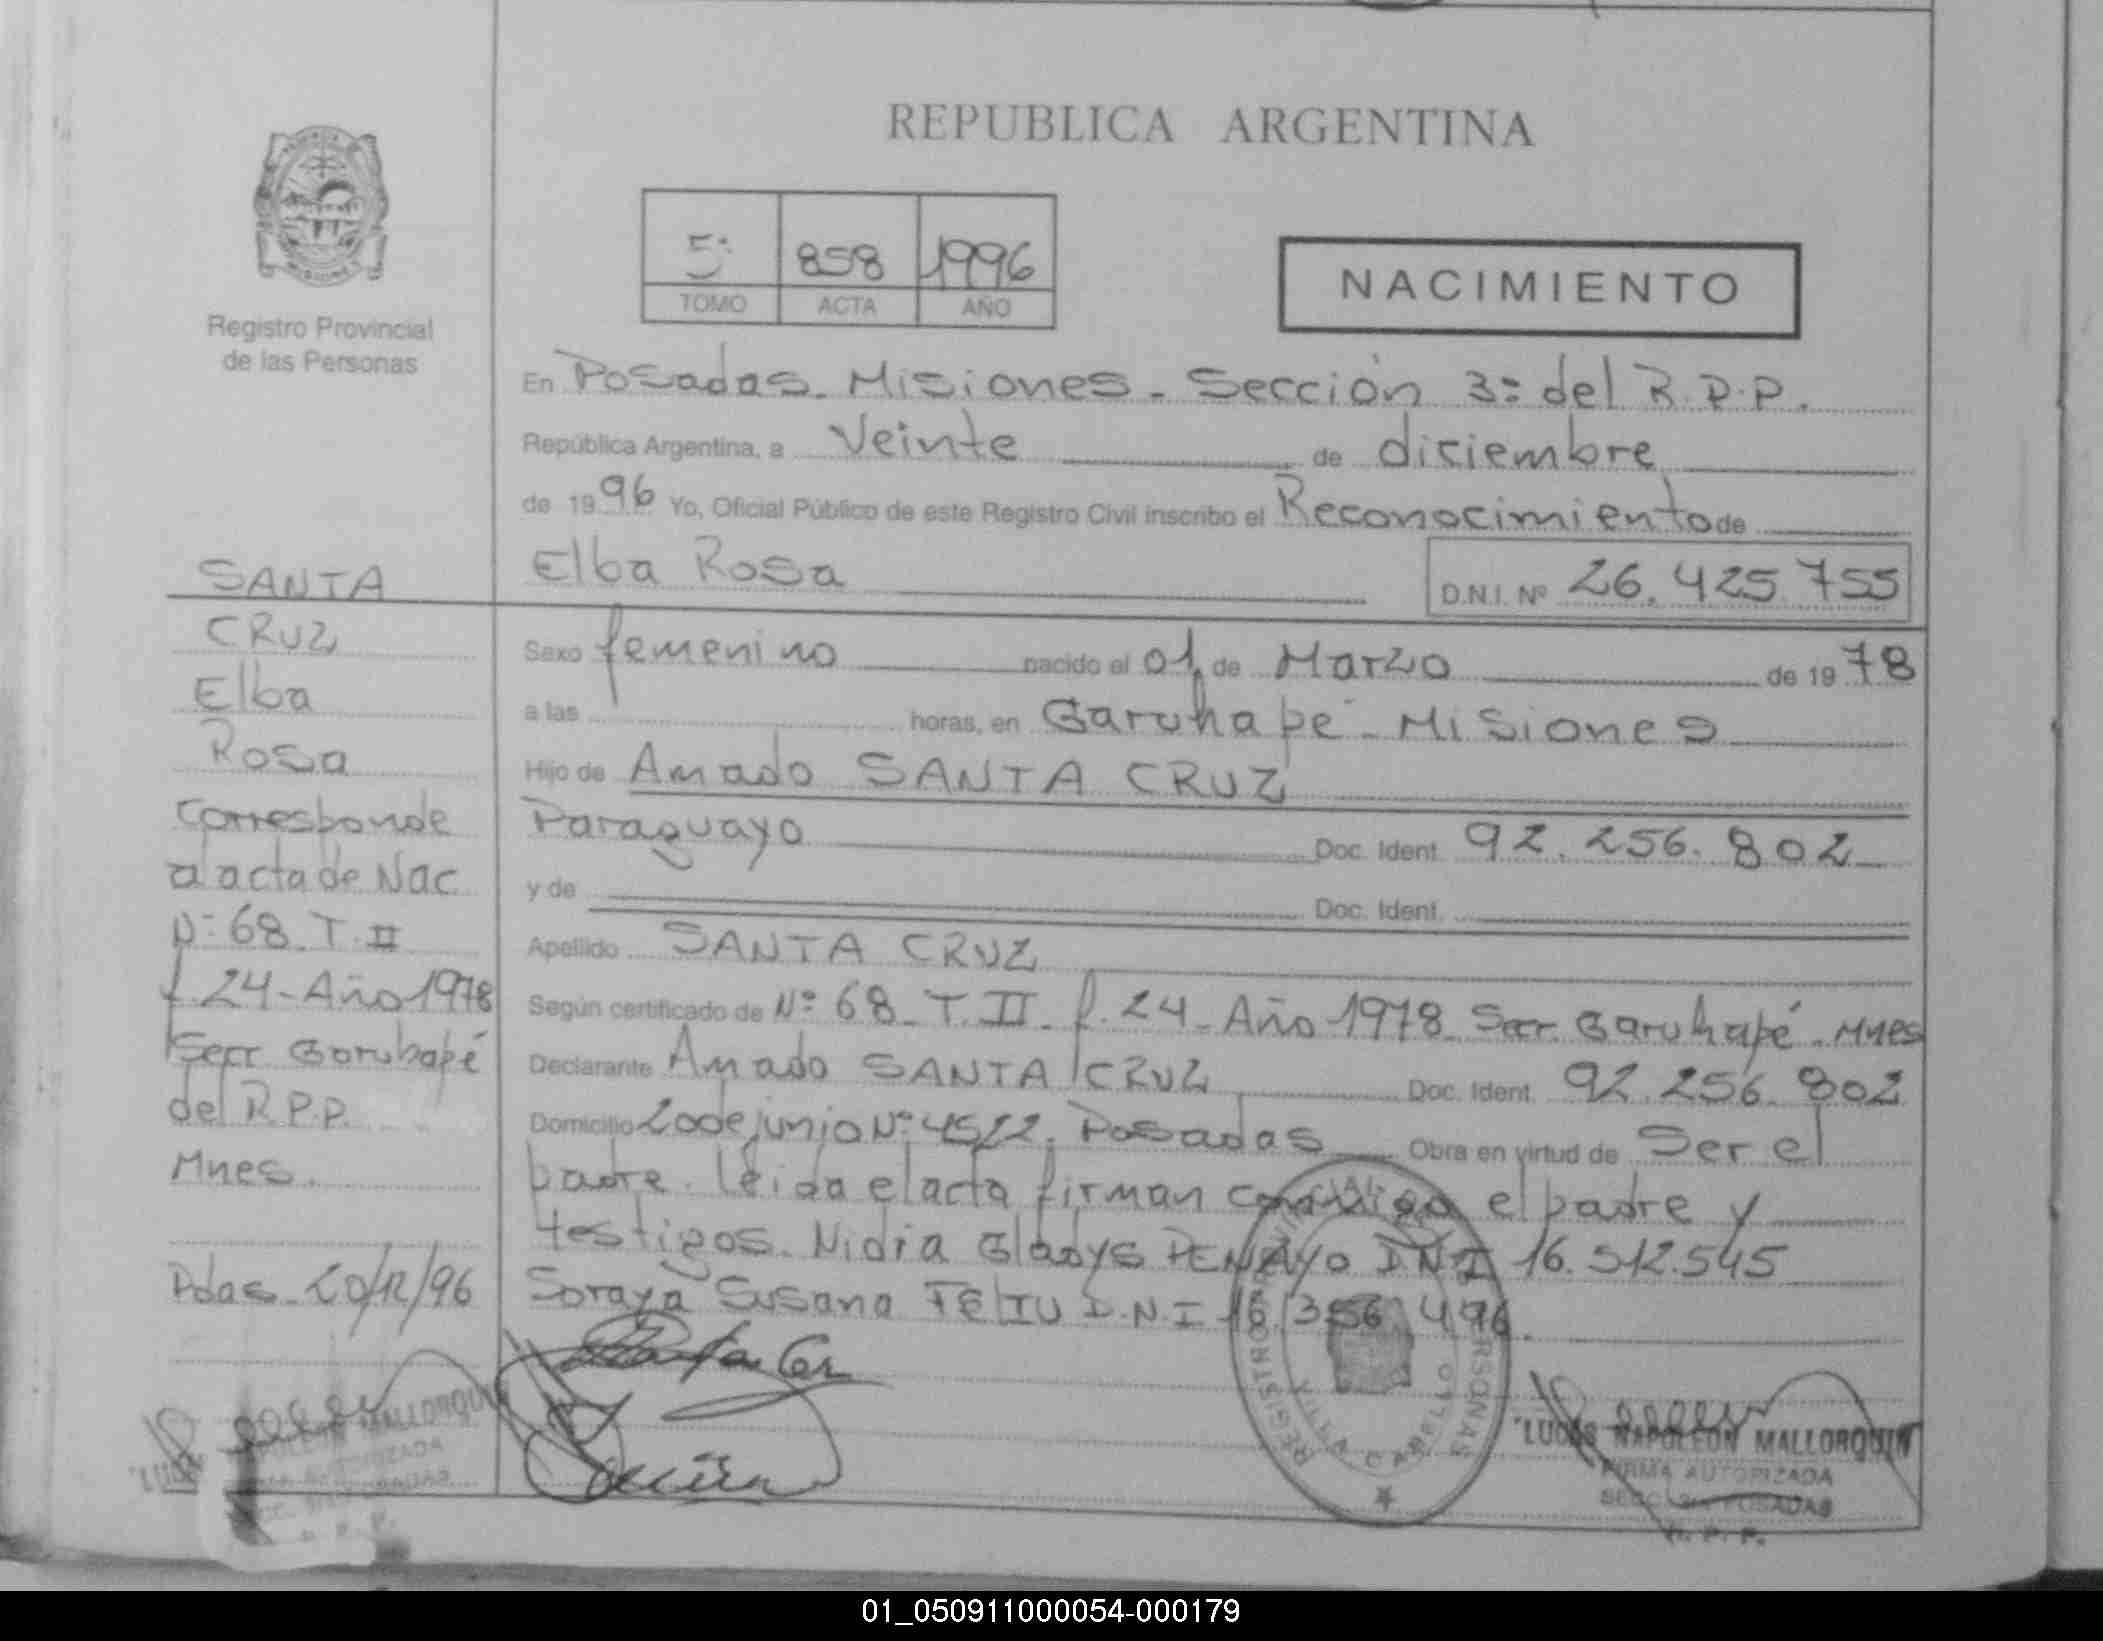 REPUBLICA ARGENTINA
5º 858 1996
TOMO ACTA AÑO
NACIMIENTO
Registro Provincial
de las Personas
En Posadas. Misiones. Sección 3º del R.P.P.
República Argentina, a Veinte de diciembre
de 1996 Yo, Oficial Público de este Registro Civil inscribo el Reconocimiento de
Elba Rosa D.N.I. Nº 26.425.755
Sexo femenino nacido el 01 de Marzo de 1978
a las horas, en Garuhapé - Misiones
Hijo de Amado SANTA CRUZ
Paraguayo Doc. Ident. 92.256.802
y de Doc. Ident.
Apellido SANTA CRUZ
Según certificado de Nº 68 T. II. f. 24 - Año 1978 Secc. Garuhapé - Mnes
Declarante Amado SANTA CRUZ Doc. Ident. 92.256.802
Domicilio 20 de junio Nº 4522. Posadas Obra en virtud de Ser el
padre. leida el acta firman conmigo el padre y
testigos. Nidia Gladys PENAYO D.N.I 16.512.545
Soraya Susana FELIU D.N.I 16.356.496.
SANTA
CRUZ
Elba
Rosa
Corresponde
a acta de Nac
Nº 68 T. II
f. 24 - Año 1978
Secc Garuhapé
del R.P.P.
Mnes.
Pdas. 20/12/96
MALLORQUIN
REGISTRO PERSONAS
VILLA CABELLO
LUCAS NAPOLEON MALLORQUIN
FIRMA AUTORIZADA
POSADAS
R. P. P.
01_050911000054-000179